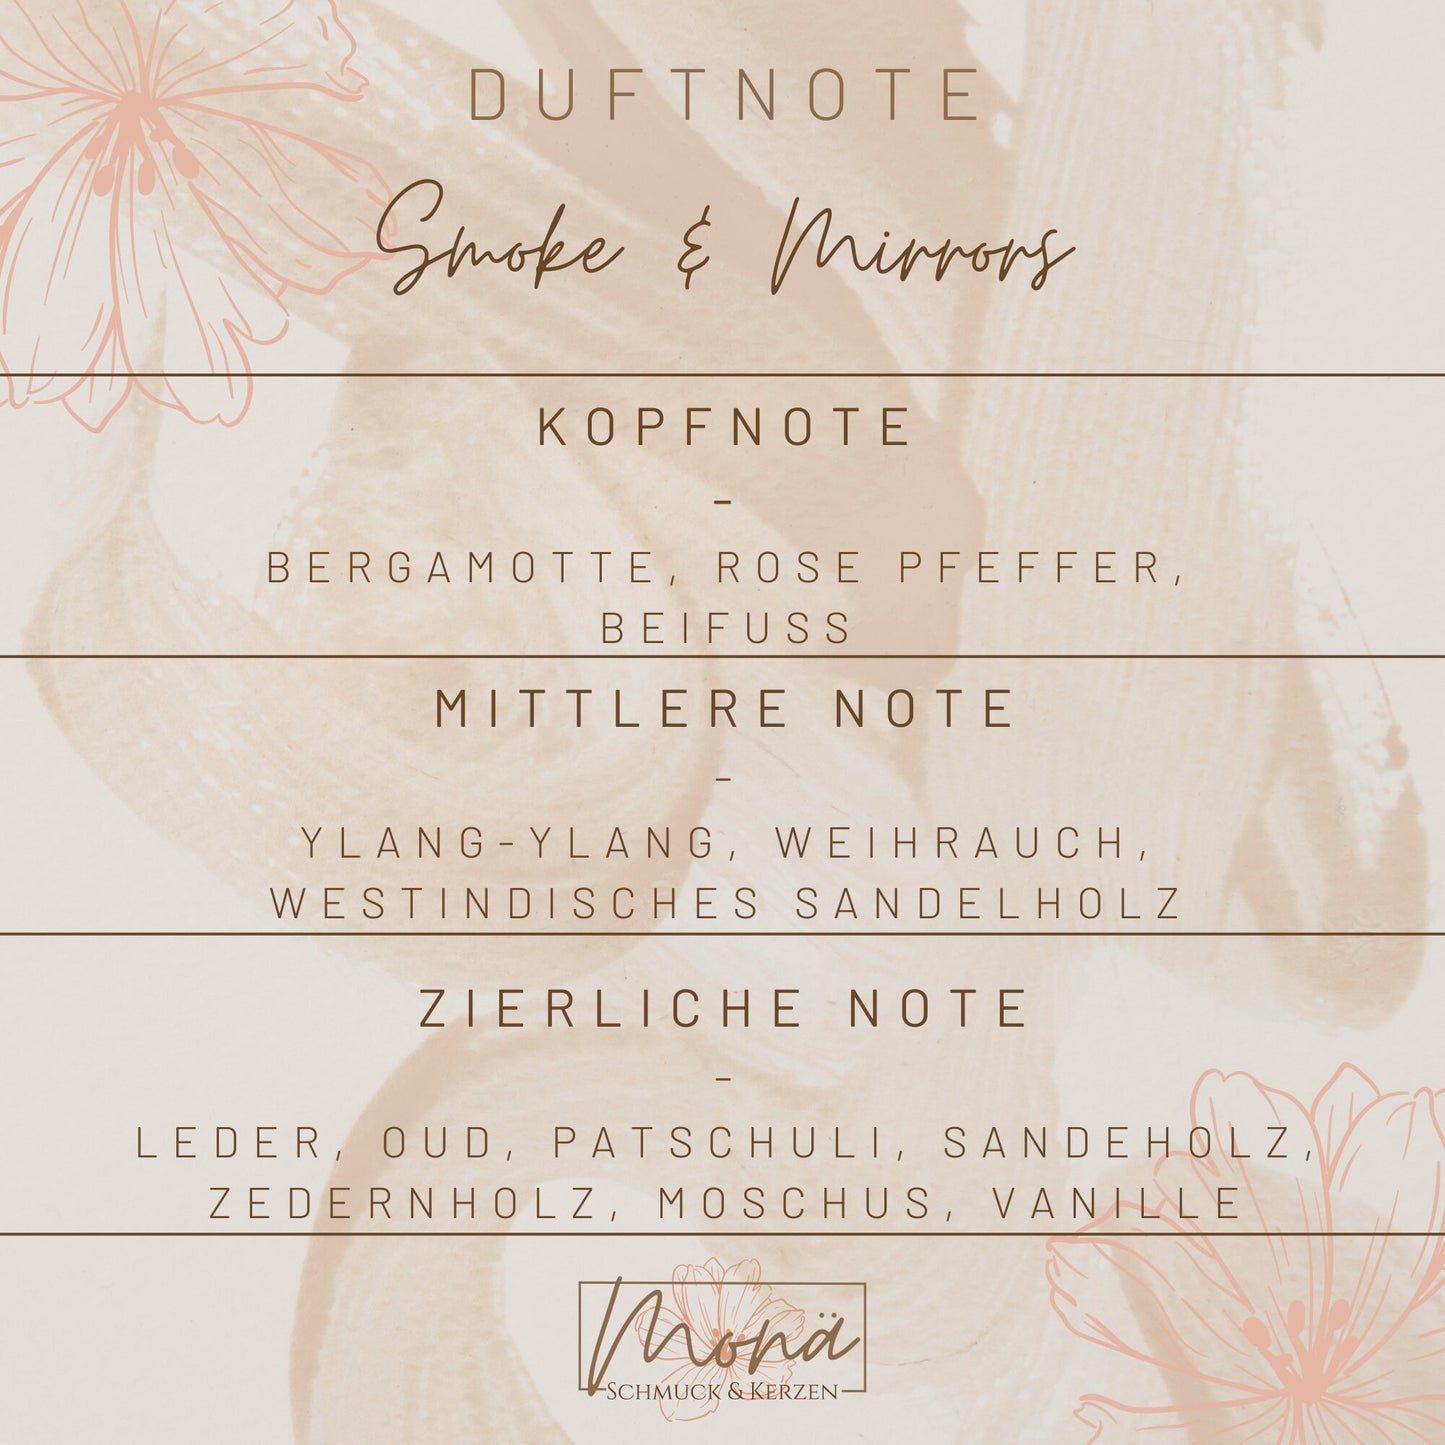 DUFTNOTE
Smoke & Mirrors
KOPFNOTE
-
BERGAMOTTE, ROSE PFEFFER,
BEIFUSS
MITTLERE NOTE
-
YLANG-YLANG, WEIHRAUCH,
WESTINDISCHES SANDELHOLZ
ZIERLICHE NOTE
-
LEDER, OUD, PATSCHULI, SANDEHOLZ,
ZEDERNHOLZ, MOSCHUS, VANILLE
Monä
SCHMUCK & KERZEN